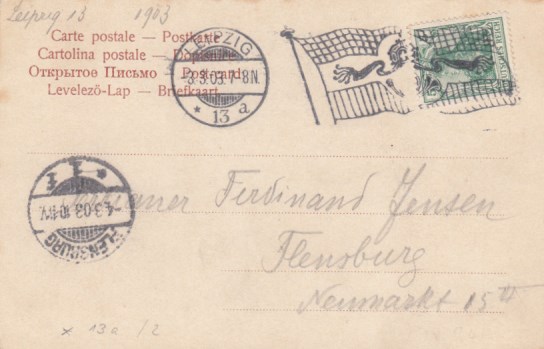 Leipzig 13 1903
Carte postale — Postkarte
Cartolina postale — Dopisnice
Открытое Письмо — Postcard
Levelező-Lap — Briefkaart
LEIPZIG
3.3.03.7-8N.
* 13 a
DEUTSCHES REICH
FLENSBURG
-4.3.03.10-11V.
* 1
Ferdinand Jensen
Flensburg
Neumarkt 15
x 13a /2